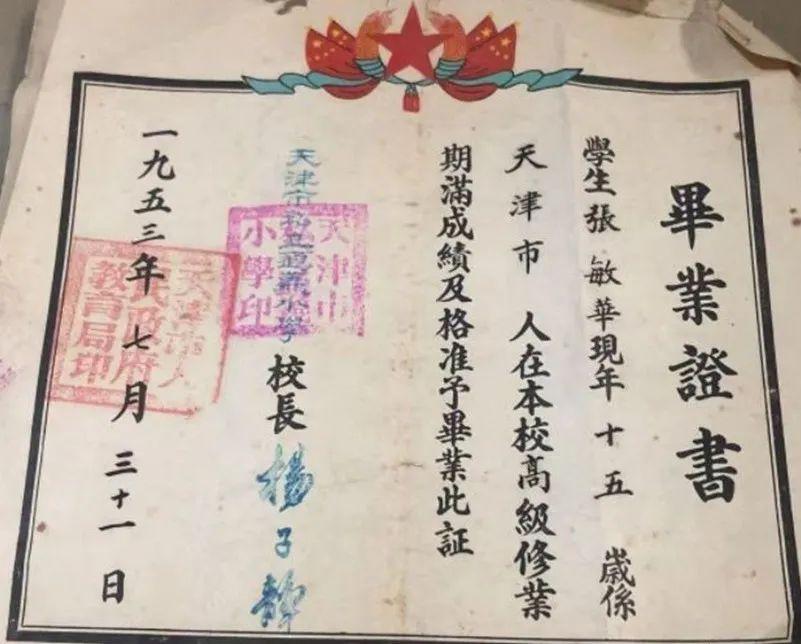 畢業證書
學生張敏華現年十五歲係
天津市人在本校高級修業
期滿成績及格准予畢業此証
天津市私立 小學校長楊子靜
天津市
小學印
一九五三年七月三十一日
天津市人
民政府
教育局印